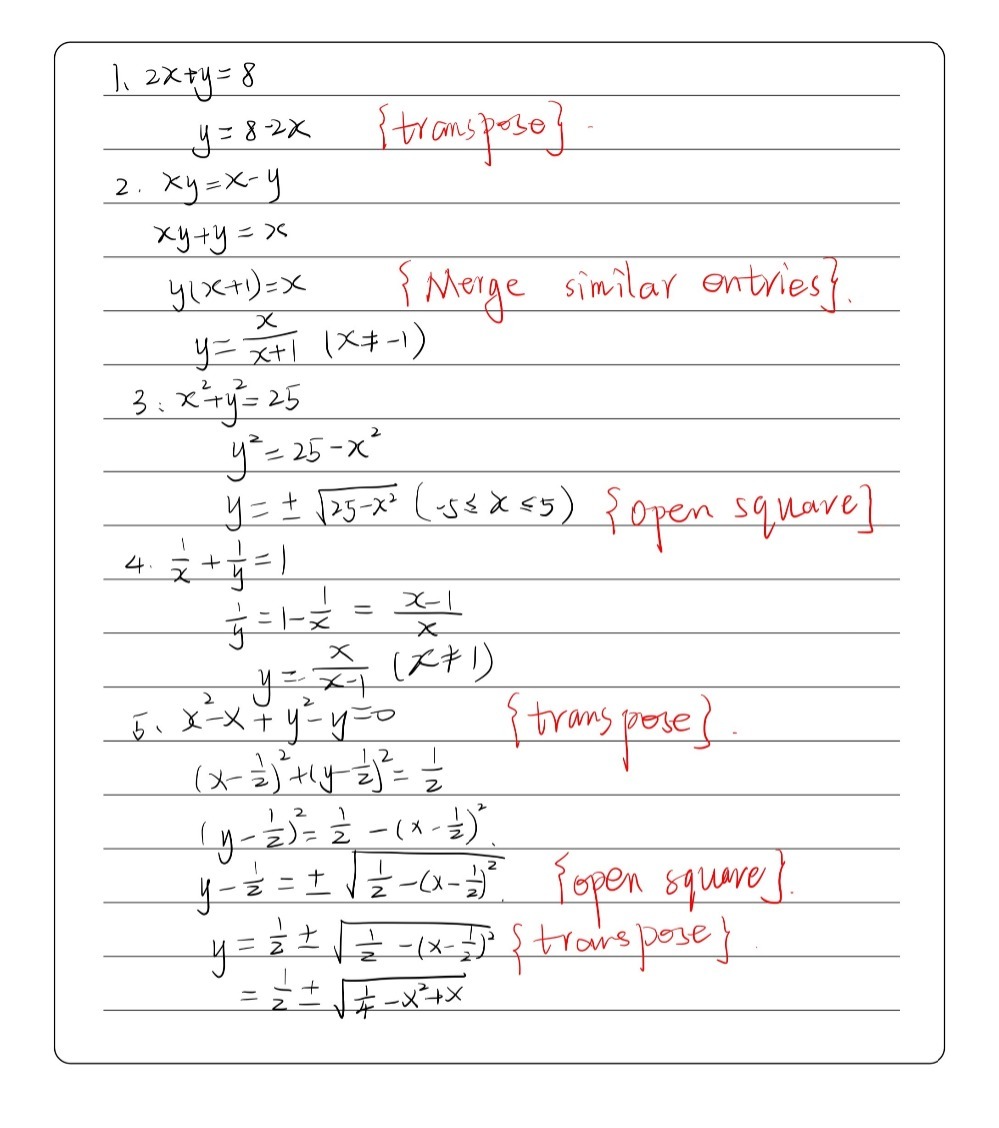 1、2x+y=8
y=8-2x {transpose}
2. xy=x-y
xy+y=x
y(x+1)=x {Merge similar entries}.
y=x/(x+1) (x≠-1)
3、x²+y²=25
y²=25-x²
y=±√(25-x²) (-5≤x≤5) {open square}
4. 1/x+1/y=1
1/y=1-1/x=(x-1)/x
y=x/(x-1) (x≠1)
5、x²-x+y²-y=0 {transpose}.
(x-1/2)²+(y-1/2)²=1/2
(y-1/2)²=1/2-(x-1/2)².
y-1/2=±√(1/2-(x-1/2)²). {open square}.
y=1/2±√(1/2-(x-1/2)²) {transpose}
=1/2±√(1/4-x²+x)